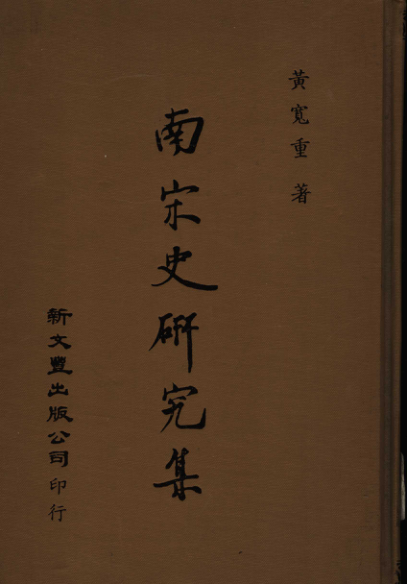 黃寬重著
南宋史研究集
新文豐出版公司印行